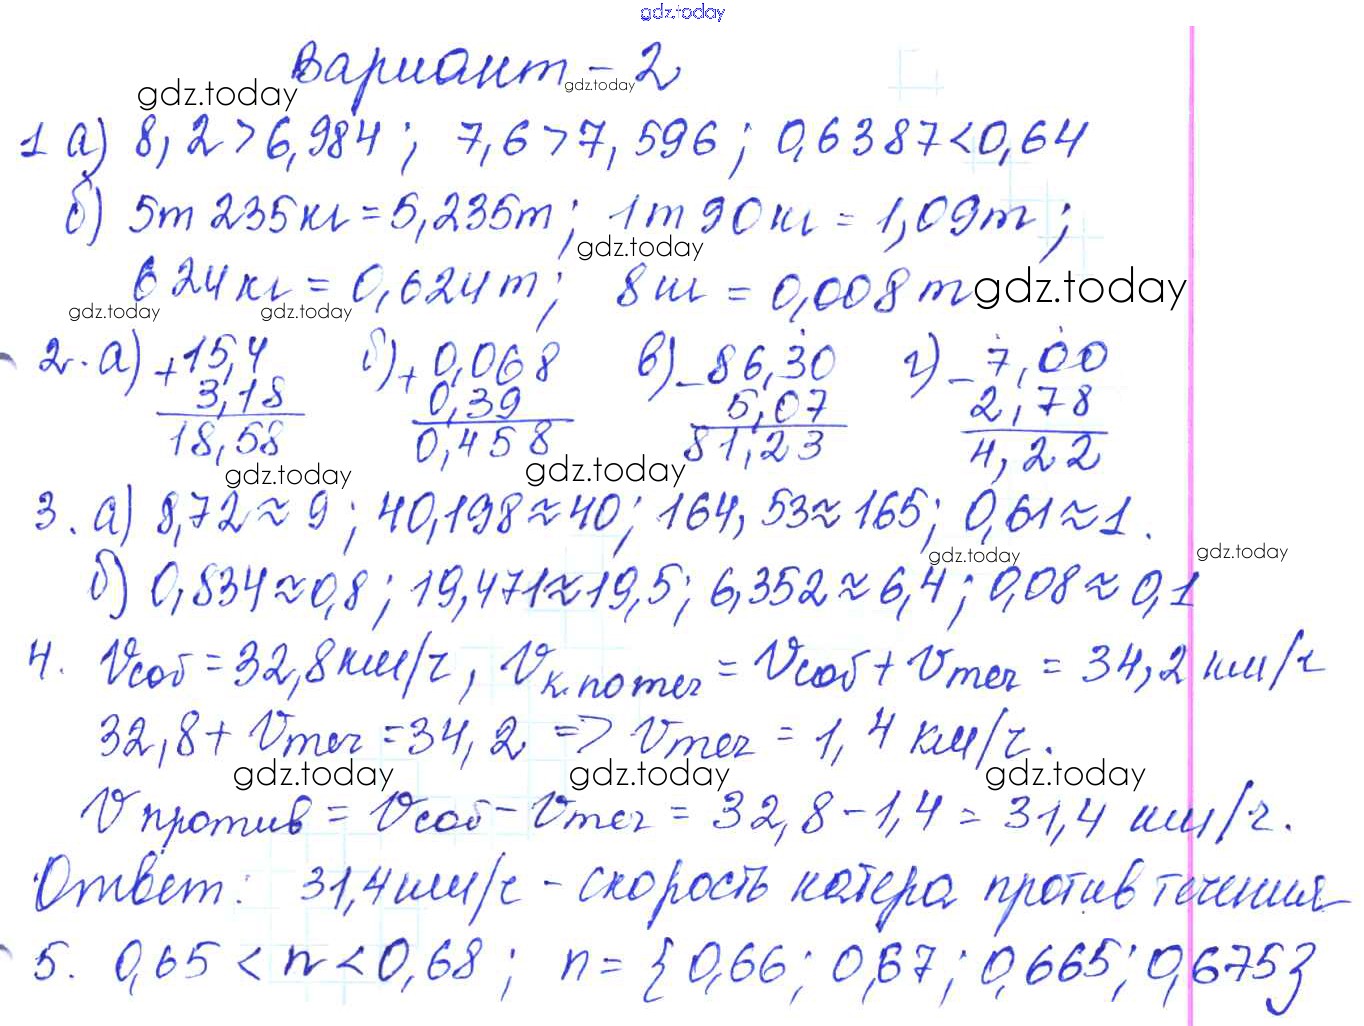 gdz.today
Вариант - 2
gdz.today gdz.today
1 а) 8,2>6,984; 7,6>7,596; 0,6387<0,64
б) 5т 235кг=5,235т; 1т 90кг=1,09т;
gdz.today
624кг=0,624т; 8кг=0,008т gdz.today
gdz.today gdz.today
2. а) +15,4 б) + 0,068 в) - 86,30 г) - 7,00
3,18 0,39 5,07 2,78
18,58 0,458 81,23 4,22
gdz.today gdz.today
3. а) 8,72≈9; 40,198≈40; 164,53≈165; 0,61≈1.
gdz.today gdz.today
б) 0,834≈0,8; 19,471≈19,5; 6,352≈6,4; 0,08≈0,1
4. Vсоб=32,8км/ч, Vк.по теч=Vсоб+Vтеч=34,2км/ч
32,8+Vтеч=34,2 => Vтеч=1,4 км/ч.
gdz.today gdz.today gdz.today
Vпротив=Vсоб-Vтеч=32,8-1,4=31,4 км/ч.
Ответ: 31,4км/ч - скорость катера против течения
5. 0,65<n<0,68; n={0,66; 0,67; 0,665; 0,675}